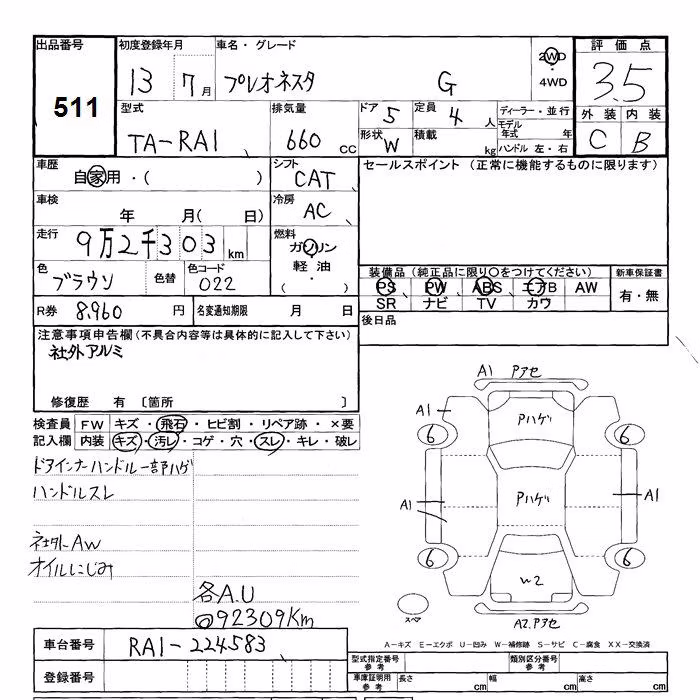 出品番号 初度登録年月 車名・グレード 2WD・4WD 評価点
511 13 7月 プレオネスタ G 3.5
型式 排気量 ドア 5 定員 4人 ディーラー・並行 外装 内装
TA-RA1 660cc 形状 W 積載 kg モデル年式 年 C B
ハンドル 左・右
車歴 シフト セールスポイント (正常に機能するものに限ります)
自家用・( ) CAT
車検 冷房
年 月( 日) AC
走行 9万2千303km 燃料
ガソリン・軽油・( )
色 ブラウン 色替 色コード 022 装備品(純正品に限り○をつけてください) 新車保証書
PS PW ABS エアB AW 有・無
SR ナビ TV カワ
R券 8,960円 名変通知期限 月 日 後日品
注意事項申告欄(不具合内容等は具体的に記入して下さい)
社外アルミ
修復歴 有 〔箇所 〕
検査員 FW キズ・飛石・ヒビ割・リペア跡・×要
記入欄 内装 キズ・汚レ・コゲ・穴・スレ・キレ・破レ
ドアインナーハンドル一部ハゲ
ハンドルスレ
社外AW
オイルにじみ
各A.U
◎92309Km
A1 Pアセ
A1 Pハゲ
6 6
A1 Pハゲ A1
6 6
W2
スペア A2.Pアセ
A-キズ E-エクボ U-凹み W-補修跡 S-サビ C-腐食 XX-交換済
車台番号 RA1-224583
型式指定番号 参考 類別区分番号 参考
登録番号
車庫証明用 参考 長さ cm 幅 cm 高さ cm